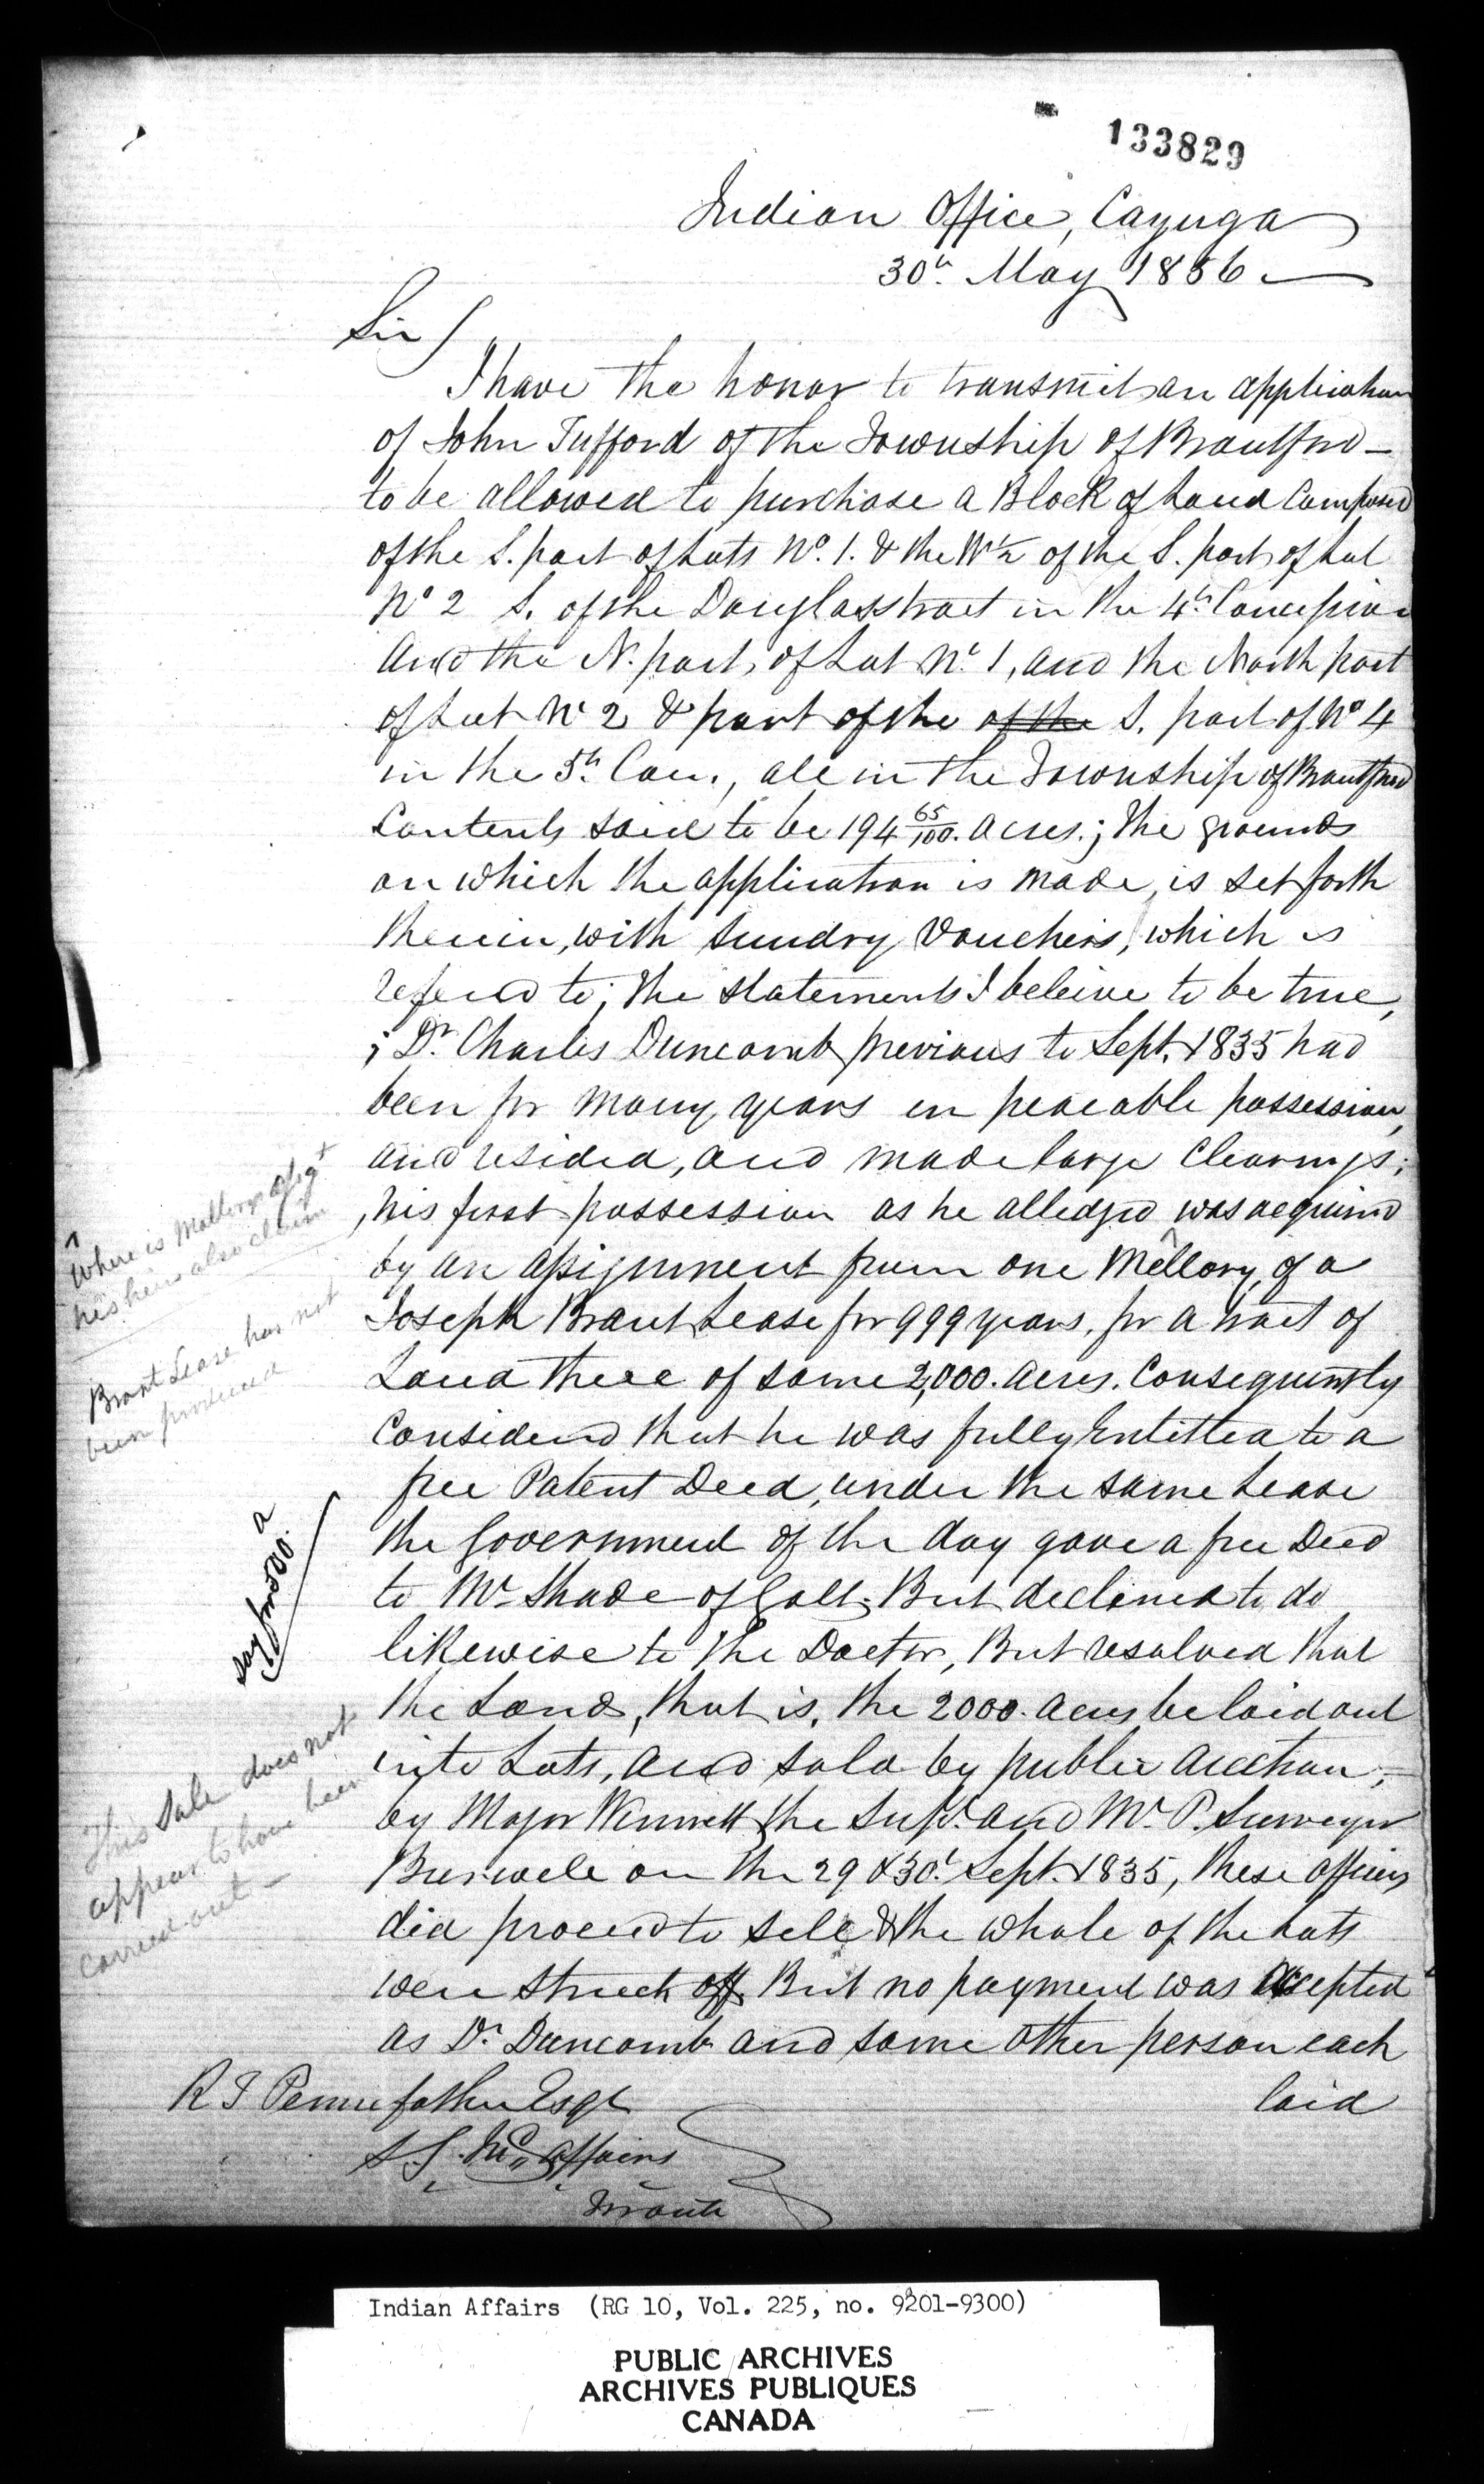 133829
Indian Office, Cayuga
30th May 1856
Sir/
I have the honor to transmit an application
of John Tufford of the Township of Brantford -
to be allowed to purchase a Block of Land Composed
of the S. part of Lots No. 1. & the W 1/2 of the S. part of Lot
No 2 S. of the Douglass tract in the 4th Concession
and the N. part, of Lot No. 1, and the North part
of Lot No 2 & part of the of the S. part of No 4
in the 5th Con., all in the Township of Brantford
Contents said to be 194 65/100. acres.; the grounds
on which the application is made, is set forth
therein, with sundry Vouchers, which is
refered to; the statements I beleive to be true,
; Dr. Charles Duncomb previous to Sept. 1835 had
been for many years in peacable possession,
and resided, and made large Clearings;
, his first possession as he alledged was acquired
by an assignment from one Mallory, of a
Joseph Brant Lease for 999 years, for a tract of
Land there of some 2,000. acres. Consequently
Considered that he was fully Entitled to a
free Patent Deed, under the same Lease
the Government of the day gave a free Deed
to Mr Shade of Galt. But declined to do
likewise to the Doctor, But resolved that
the Land, that is, the 2000. acres be laid out
into Lots, and sold by public Auction,
by Major Winniett the Supt. and Mr. P. Surveyor
Burwell on the 29 & 30th Sept. 1835, these officers
did proceed to sell & the whole of the Lots
were struck off But no payment was accepted
as Dr. Duncomb and some other person each
laid
R T Pennefather Esqr
S. G. Ind. Affairs
Toronto
Where is Mallorys assigt
his heirs also claim
Brant Lease has not
been produced
This Sale does not
appear to have been
carried out -
Indian Affairs (RG 10, Vol. 225, no. 9201-9300)
PUBLIC ARCHIVES
ARCHIVES PUBLIQUES
CANADA